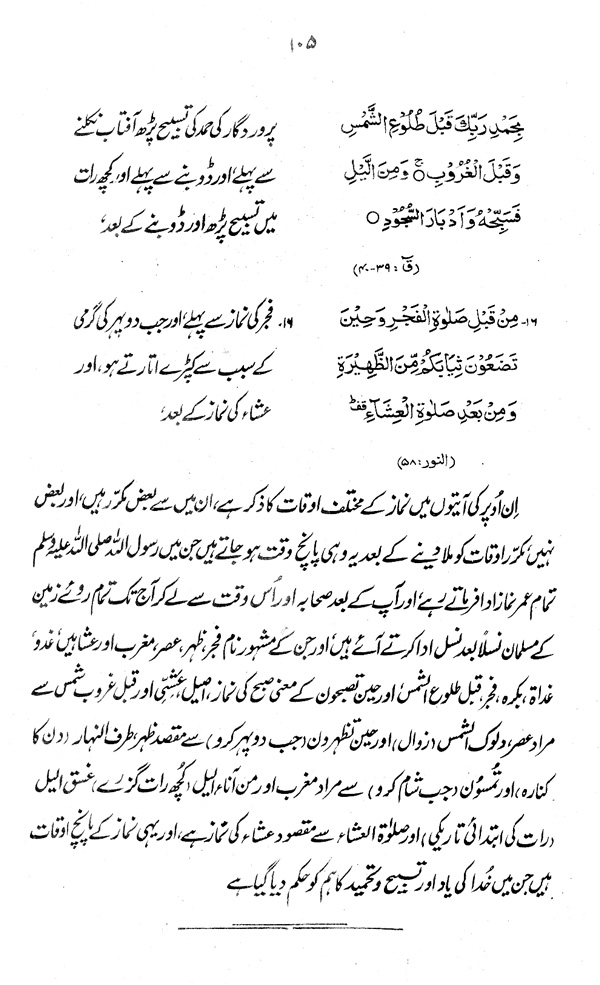 ۱۰۵
بِحَمْدِ رَبِّكَ قَبْلَ طُلُوْعِ الشَّمْسِ
وَقَبْلَ الْغُرُوْبِ ○ ۚ وَمِنَ الَّيْلِ
فَسَبِّحْهُ وَاَدْبَارَ السُّجُوْدِ ○
(قٓ : ۳۹-۴۰)
پروردگار کی حمد کی تسبیح پڑھ آفتاب نکلنے
سے پہلے، اور ڈوبنے سے پہلے اور کچھ رات
میں تسبیح پڑھ اور ڈوبنے کے بعد،
۱۶- مِنْ قَبْلِ صَلٰوةِ الْفَجْرِ وَحِيْنَ
تَضَعُوْنَ ثِيَابَكُمْ مِّنَ الظَّهِيْرَةِ
وَمِنْ بَعْدِ صَلٰوةِ الْعِشَآءِ قف
(النور : ۵۸)
۱۶. فجر کی نماز سے پہلے، اور جب دوپہر کی گرمی
کے سبب سے کپڑے اتارتے ہو، اور
عشاء کی نماز کے بعد،
اِن اُوپر کی آیتوں میں نماز کے مختلف اوقات کا ذکر ہے، ان میں سے بعض مکرّر ہیں، اور بعض
نہیں، مکرّر اوقات کو ملا دینے کے بعد یہ وہی پانچ وقت ہو جاتے ہیں جن میں رسول اللہ صلی اللہ علیہ وسلم
تمام عمر نماز ادا فرماتے رہے، اور آپ کے بعد صحابہ اور اُس وقت سے لے کر آج تک تمام روئے زمین
کے مسلمان نسلاً بعد نسل ادا کرتے آئے ہیں، اور جن کے مشہور نام فجر، ظہر، عصر، مغرب اور عشا ہیں، غدو،
غداۃ، بکرہ، فجر، قبل طلوع الشمس اور حین تصبحون کے معنی صبح کی نماز، اصیل، عشیّ، اور قبل غروب شمس سے
مراد عصر، دلوک الشمس (زوال) اور حین تظہرون (جب دوپہر کرو) سے مقصد ظہر، طرف النہار (دن کا
کنارہ) اور تُمسُون (جب شام کرو) سے مراد مغرب اور من آناء الیل (کچھ رات گزرے) غسق الیل
(رات کی ابتدائی تاریکی) اور صلوٰۃ العشاء سے مقصود عشاء کی نماز ہے، اور یہی نماز کے پانچ اوقات
ہیں جن میں خُدا کی یاد اور تسبیح و تحمید کا ہم کو حکم دیا گیا ہے